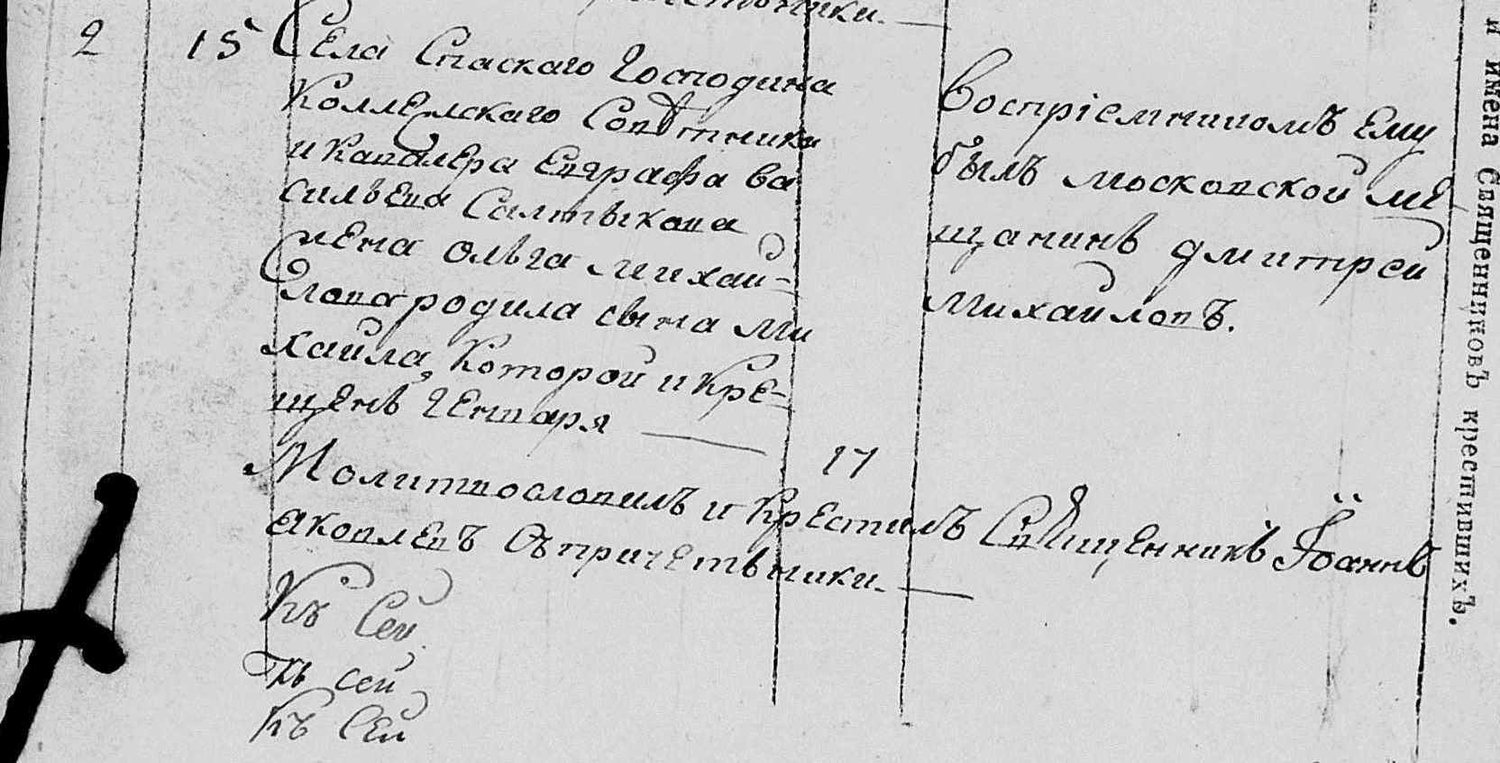 тники.
2 15 Села Спаскаго Господина
Коллежскаго Совѣтника
и кавалера Евграфа Ва
сильева Салтыкова
жена Ольга Михай-
лова родила сына Ми
хаила, которой и кре-
щенъ Генваря 17
Воспріемникомъ ему
былъ московской ме-
щанинъ Дмитрей
Михаиловъ.
Молитвословилъ и крестилъ Священникъ Іоаннъ
Яковлевъ съ причетьники.
Къ Сей
Къ сей
Къ Сей
и имена Священниковъ крестившихъ.